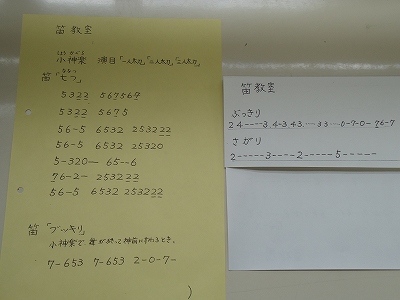 笛教室
小神楽 演目「一人太刀」「二人太刀」「三人太刀」
笛「七つ」
5322 567567
5322 5675
56-5 6532 253222
56-5 6532 25320
5-320- 65--6
76-2- 253222
56-5 6532 253222
笛「ブッキリ」
小神楽で、舞が終って神前に
7-653 7-653 2-0-7-
笛教室
ぶっきり
さがり
2-----3----2-----5-----